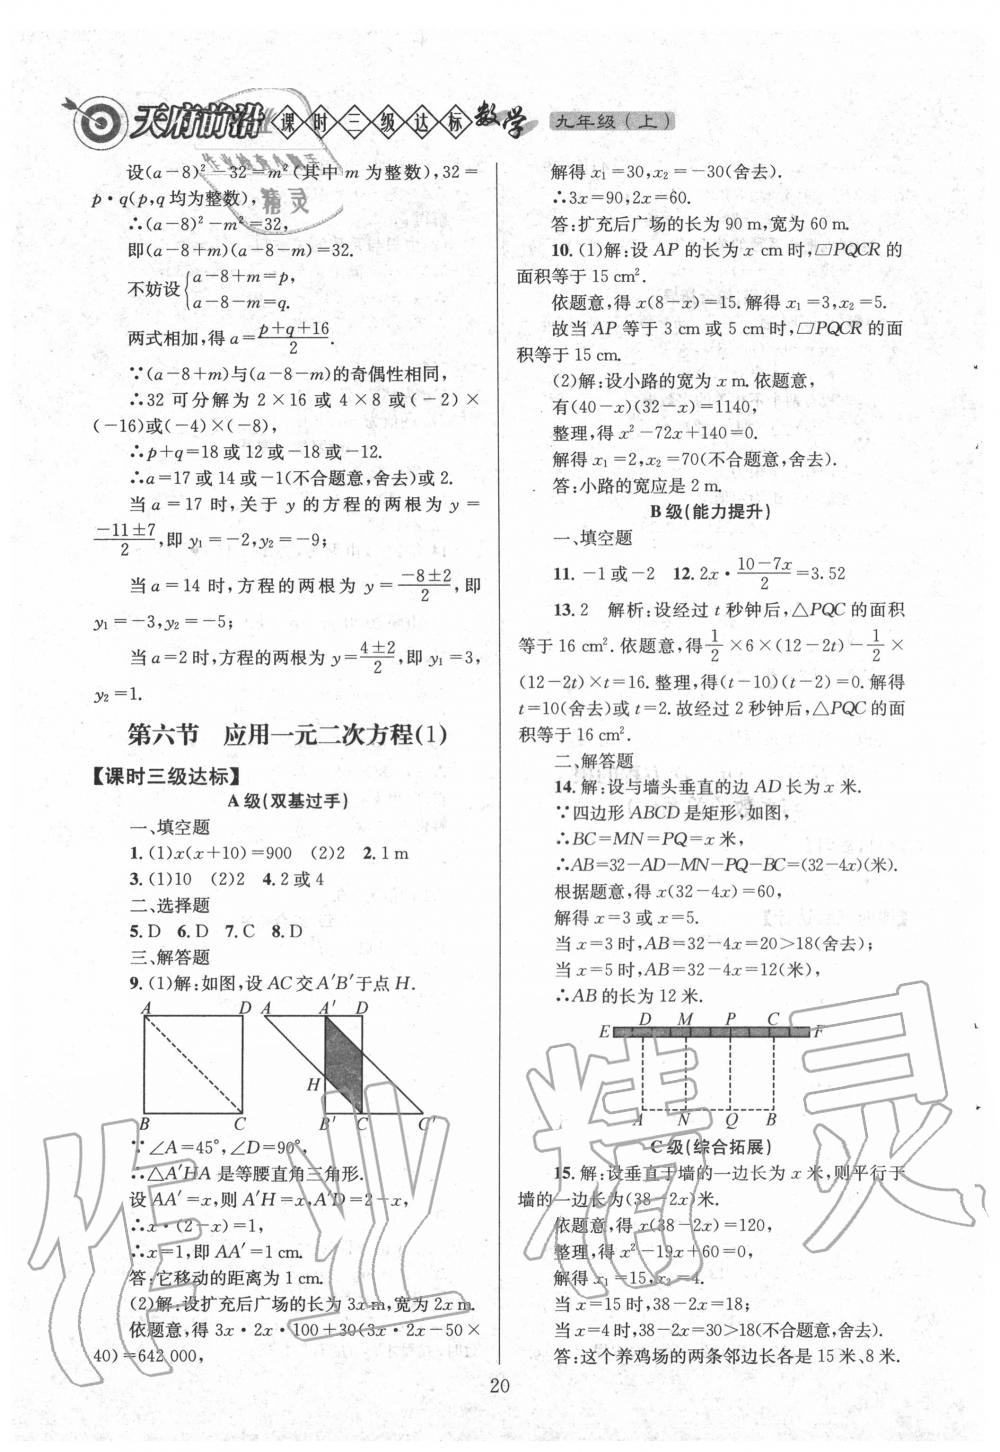 天府前沿 课时三级达标 数学 九年级(上)
设(a-8)²-32=m²(其中 m 为整数),32=
p·q(p,q 均为整数),
∴(a-8)²-m²=32,
即(a-8+m)(a-8-m)=32.
不妨设{a-8+m=p,
a-8-m=q.
两式相加,得 a=(p+q+16)/2.
∵(a-8+m)与(a-8-m)的奇偶性相同,
∴32 可分解为 2×16 或 4×8 或(-2)×
(-16)或(-4)×(-8),
∴p+q=18 或 12 或-18 或-12.
∴a=17 或 14 或-1(不合题意,舍去)或2.
当 a=17 时,关于 y 的方程的两根为 y=
(-11±7)/2,即 y₁=-2,y₂=-9;
当 a=14 时,方程的两根为 y=(-8±2)/2,即
y₁=-3,y₂=-5;
当 a=2 时,方程的两根为 y=(4±2)/2,即 y₁=3,
y₂=1.
第六节 应用一元二次方程(1)
【课时三级达标】
A 级(双基过手)
一、填空题
1.(1)x(x+10)=900 (2)2 2.1 m
3.(1)10 (2)2 4.2 或 4
二、选择题
5.D 6.D 7.C 8.D
三、解答题
9.(1)解:如图,设 AC 交 A′B′于点 H.
A D A A′ D
H
B C B′ C C′
∵∠A=45°,∠D=90°,
∴△A′HA 是等腰直角三角形.
设 AA′=x,则 A′H=x,A′D=2-x,
∴x·(2-x)=1,
∴x=1,即 AA′=1 cm.
答:它移动的距离为 1 cm.
(2)解:设扩充后广场的长为 3x m,宽为 2x m.
依题意,得 3x·2x·100+30(3x·2x-50×
40)=642 000,
解得 x₁=30,x₂=-30(舍去).
∴3x=90,2x=60.
答:扩充后广场的长为 90 m,宽为 60 m.
10.(1)解:设 AP 的长为 x cm 时,▱PQCR 的
面积等于 15 cm².
依题意,得 x(8-x)=15. 解得 x₁=3,x₂=5.
故当 AP 等于 3 cm 或 5 cm 时,▱PQCR 的面
积等于 15 cm.
(2)解:设小路的宽为 x m. 依题意,
有(40-x)(32-x)=1140,
整理,得 x²-72x+140=0.
解得 x₁=2,x₂=70(不合题意,舍去).
答:小路的宽应是 2 m.
B 级(能力提升)
一、填空题
11.-1 或-2 12.2x·(10-7x)/2=3.52
13.2 解析:设经过 t 秒钟后,△PQC 的面积
等于 16 cm². 依题意,得 1/2×6×(12-2t)-1/2×
(12-2t)×t=16. 整理,得(t-10)(t-2)=0. 解得
t=10(舍去)或 t=2. 故经过 2 秒钟后,△PQC 的面
积等于 16 cm².
二、解答题
14.解:设与墙头垂直的边 AD 长为 x 米.
∵四边形 ABCD 是矩形,如图,
∴BC=MN=PQ=x 米,
∴AB=32-AD-MN-PQ-BC=(32-4x)(米).
根据题意,得 x(32-4x)=60,
解得 x=3 或 x=5.
当 x=3 时,AB=32-4x=20>18(舍去);
当 x=5 时,AB=32-4x=12(米),
∴AB 的长为 12 米.
D M P C
E F
A N Q B
C 级(综合拓展)
15.解:设垂直于墙的一边长为 x 米,则平行于
墙的一边长为(38-2x)米.
依题意,得 x(38-2x)=120,
整理,得 x²-19x+60=0,
解得 x₁=15,x₂=4.
当 x=15 时,38-2x=18;
当 x=4 时,38-2x=30>18(舍去).
答:这个养鸡场的两条邻边长各是 15 米、8 米.
20
作业精灵